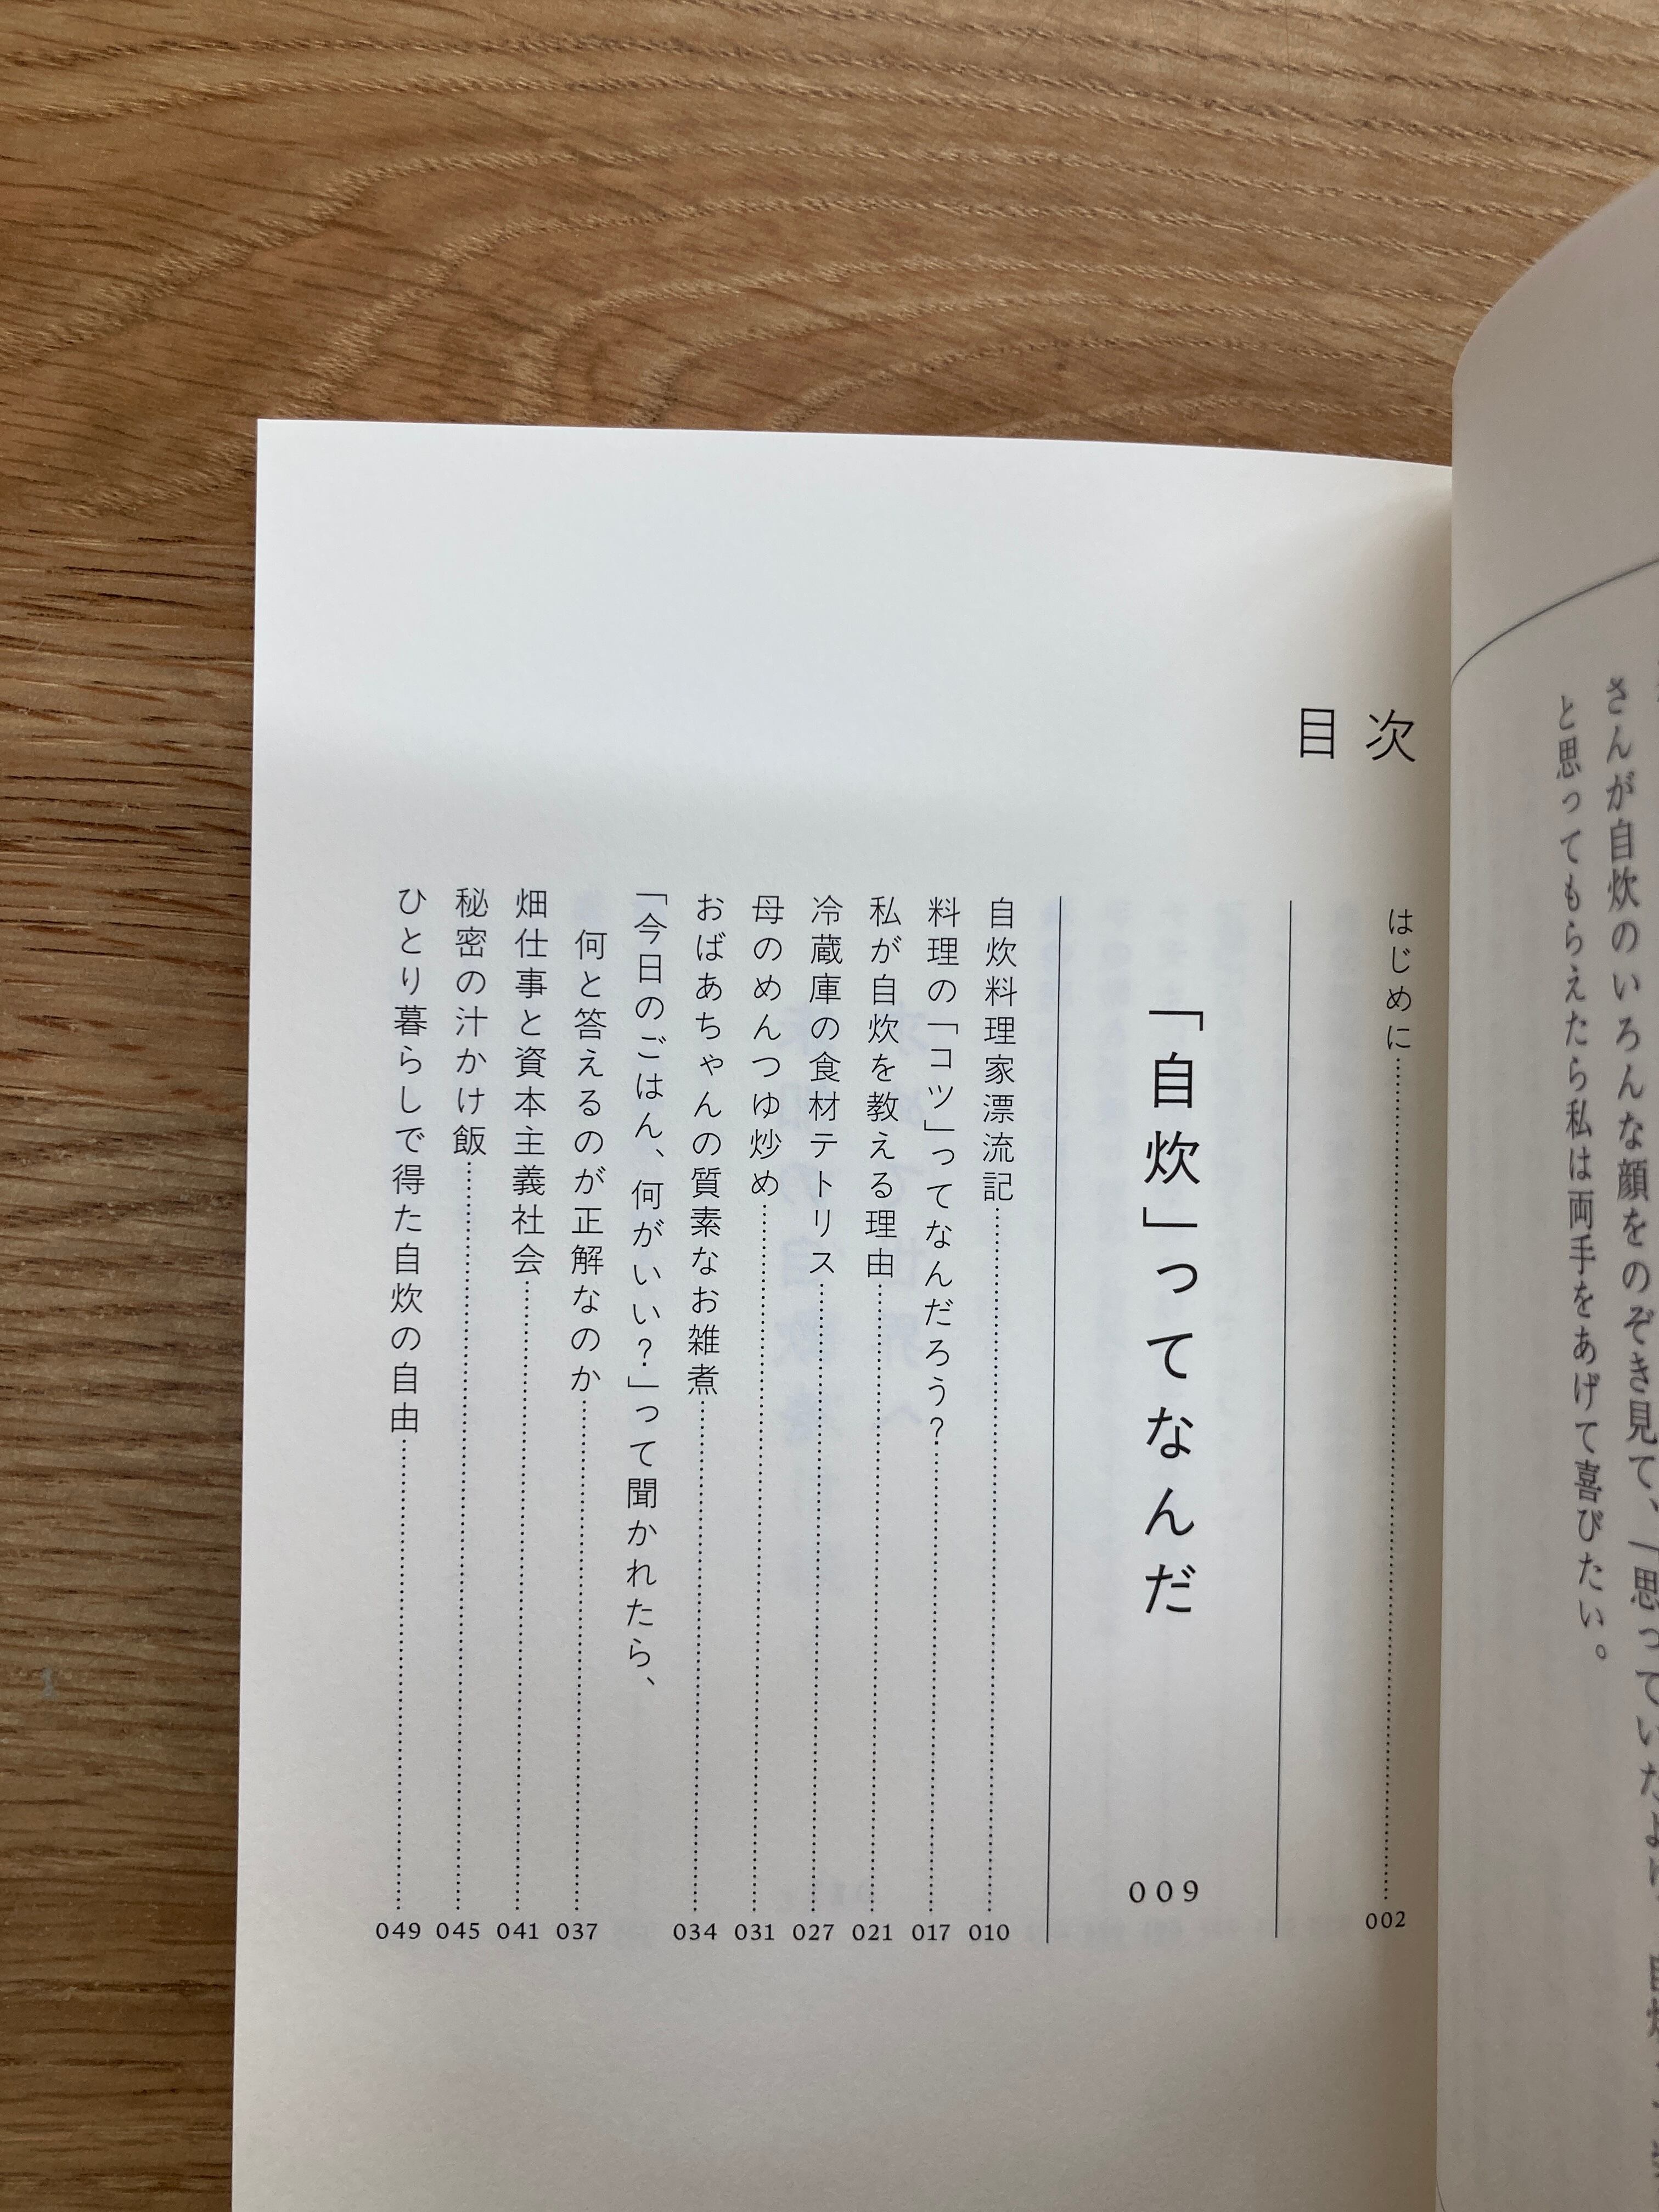 さんが自炊のいろんな顔をのぞき見て、「思っていたより
と思ってもらえたら私は両手をあげて喜びたい。
目次
はじめに 002
「自炊」ってなんだ 009
自炊料理家漂流記 010
料理の「コツ」ってなんだろう？ 017
私が自炊を教える理由 021
冷蔵庫の食材テトリス 027
母のめんつゆ炒め 031
おばあちゃんの質素なお雑煮 034
「今日のごはん、何がいい？」って聞かれたら、
何と答えるのが正解なのか 037
畑仕事と資本主義社会 041
秘密の汁かけ飯 045
ひとり暮らしで得た自炊の自由 049